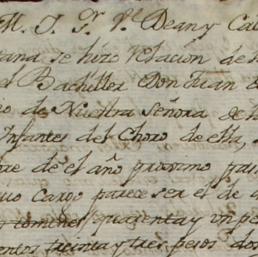 M. I. Sr. Ve. Dean y Ca
ana se hizo relacion de
el Bachiller Don Juan
o de Nuestra Señora de
Infantes del Choro de ella,
re de el año proximo pas
uio cargo parece ser el de
y comunes quarenta y un pe
entos treinta y tres pesos dos